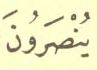 يُنْصَرُونَ